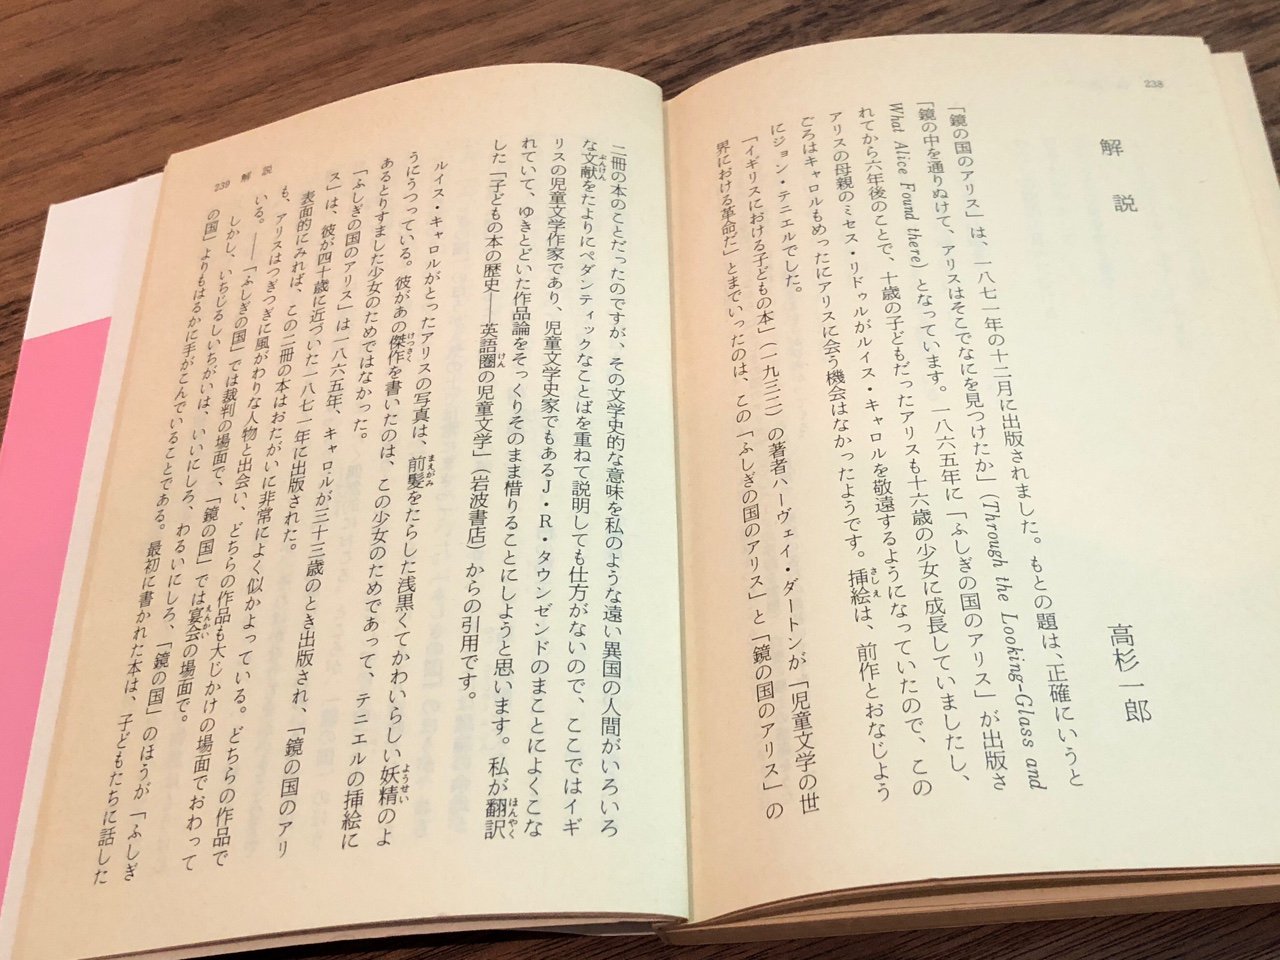 238
解説
高杉一郎
「鏡の国のアリス」は、一八七一年の十二月に出版されました。もとの題は、正確にいうと
「鏡の中を通りぬけて、アリスはそこでなにを見つけたか」(Through the Looking-Glass and
What Alice Found there)となっています。一八六五年に「ふしぎの国のアリス」が出版さ
れてから六年後のことで、十歳の子どもだったアリスも十六歳の少女に成長していましたし、
アリスの母親のミセス・リドゥルがルイス・キャロルを敬遠するようになっていたので、この
ごろはキャロルもめったにアリスに会う機会はなかったようです。挿絵は、前作とおなじよう
にジョン・テニエルでした。
「イギリスにおける子どもの本」(一九三二)の著者ハーヴェイ・ダートンが「児童文学の世
界における革命だ」とまでいったのは、この「ふしぎの国のアリス」と「鏡の国のアリス」の
二冊の本のことだったのですが、その文学史的な意味を私のような遠い異国の人間がいろいろ
な文献をたよりにペダンティックなことばを重ねて説明しても仕方がないので、ここではイギ
リスの児童文学作家であり、児童文学史家でもあるJ・R・タウンゼンドのまことによくこな
れていて、ゆきとどいた作品論をそっくりそのまま借りることにしようと思います。私が翻訳
した「子どもの本の歴史——英語圏の児童文学」(岩波書店)からの引用です。
ルイス・キャロルがとったアリスの写真は、前髪をたらした浅黒くてかわいらしい妖精のよ
うにうつっている。彼があの傑作を書いたのは、この少女のためであって、テニエルの挿絵に
あるとりすました少女のためではなかった。
「ふしぎの国のアリス」は一八六五年、キャロルが三十三歳のとき出版され、「鏡の国のアリ
ス」は、彼が四十歳に近づいた一八七一年に出版された。
表面的にみれば、この二冊の本はおたがいに非常によく似かよっている。どちらの作品で
も、アリスはつぎつぎに風がわりな人物と出会い、どちらの作品も大じかけの場面でおわって
いる。——「ふしぎの国」では裁判の場面で、「鏡の国」では宴会の場面で。
しかし、いちじるしいちがいは、いいにしろ、わるいにしろ、「鏡の国」のほうが「ふしぎ
の国」よりもはるかに手がこんでいることである。最初に書かれた本は、子どもたちに話した
239 解説